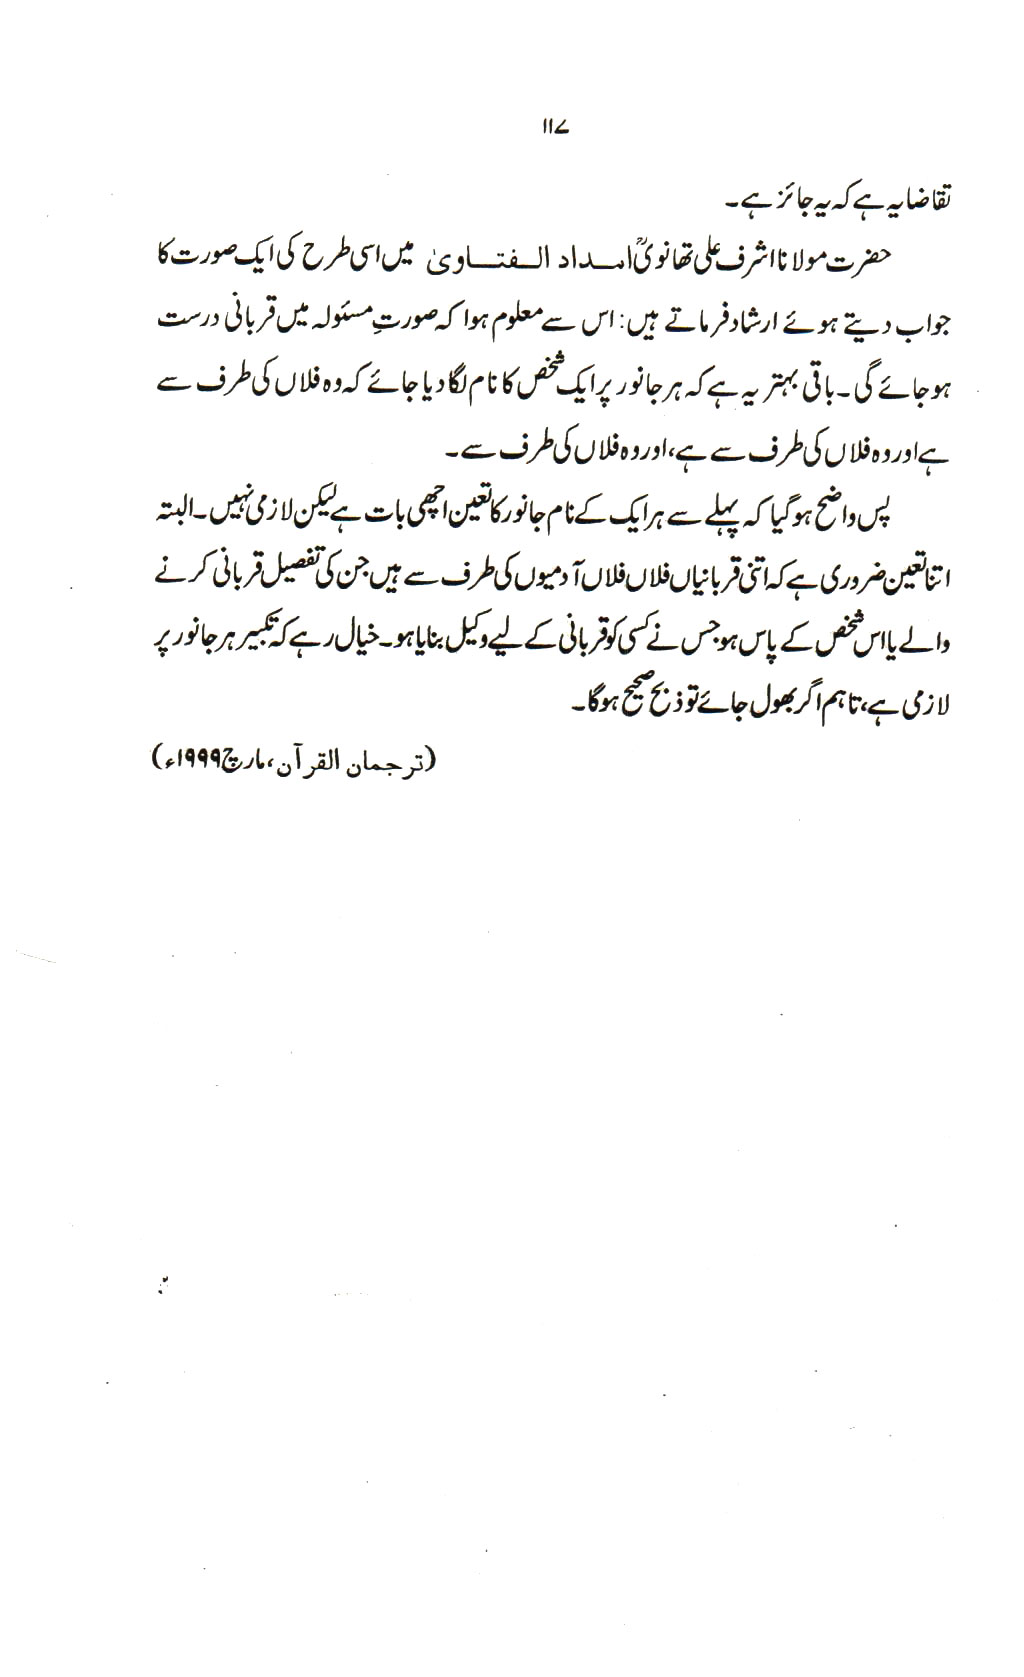 ۱۱۷
تقاضا یہ ہے کہ یہ جائز ہے۔
حضرت مولانا اشرف علی تھانویؒ امداد الفتاویٰ میں اسی طرح کی ایک صورت کا
جواب دیتے ہوئے ارشاد فرماتے ہیں: اس سے معلوم ہوا کہ صورتِ مسئولہ میں قربانی درست
ہو جائے گی۔ باقی بہتر یہ ہے کہ ہر جانور پر ایک شخص کا نام لگا دیا جائے کہ وہ فلاں کی طرف سے
ہے اور وہ فلاں کی طرف سے ہے، اور وہ فلاں کی طرف سے۔
پس واضح ہو گیا کہ پہلے سے ہر ایک کے نام جانور کا تعین اچھی بات ہے لیکن لازمی نہیں۔ البتہ
اتنا تعین ضروری ہے کہ اتنی قربانیاں فلاں فلاں آدمیوں کی طرف سے ہیں جن کی تفصیل قربانی کرنے
والے یا اس شخص کے پاس ہو جس نے کسی کو قربانی کے لیے وکیل بنایا ہو۔ خیال رہے کہ تکبیر ہر جانور پر
لازمی ہے، تاہم اگر بھول جائے تو ذبح صحیح ہوگا۔
(ترجمان القرآن، مارچ ۱۹۹۹ء)